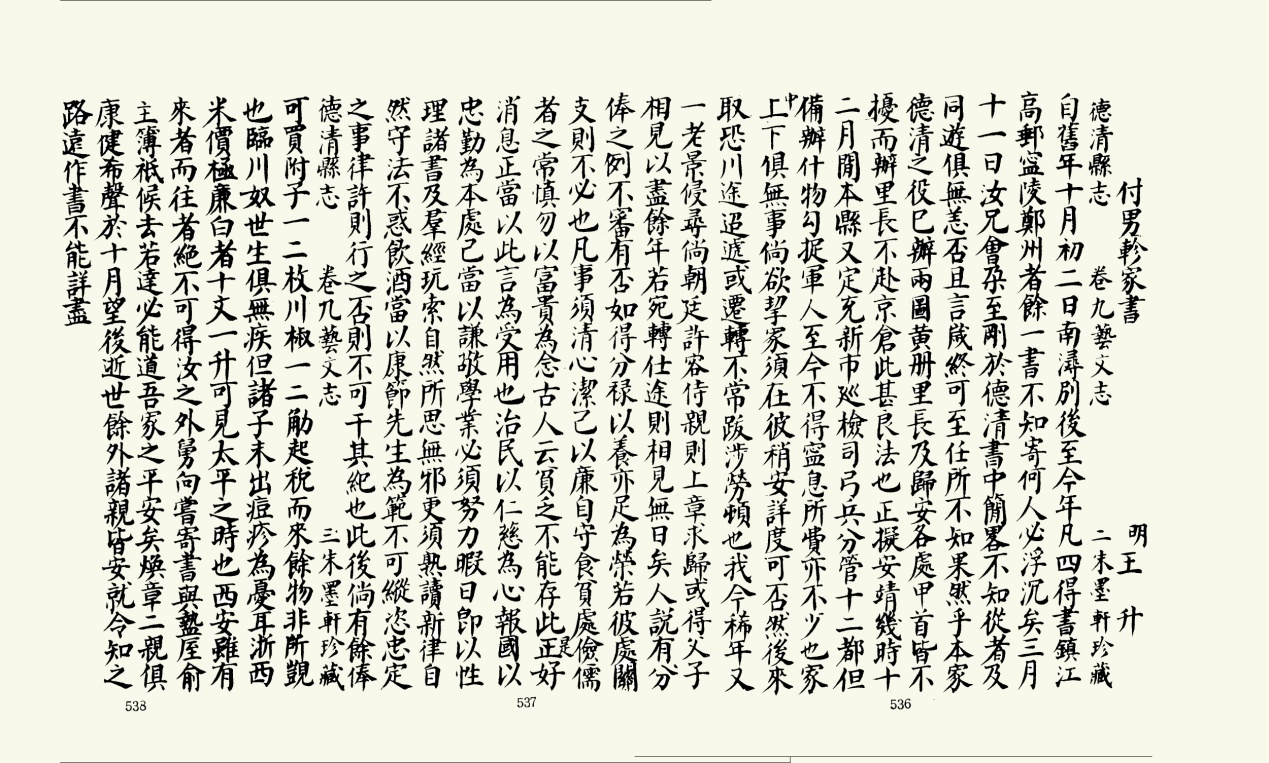 付男軫家書
明王 升
德清縣志 卷九藝文志 二朱墨軒珍藏
自舊年十月初二日南潯別後至今年凡四得書鎮江
高郵寍陵鄭州者餘一書不知寄何人必浮沉矣三月
十一日汝兄會孕至剛於德清書中簡畧不知從者及
同遊俱無恙否且言歲終可至任所不知果然乎本家
德清之役已辦兩圖黃册里長及歸安各處甲首皆不
擾而辦里長不赴京倉此甚良法也正擬安靖幾時十
二月閒本縣又定充新市廵檢司弓兵分管十二都但
備辦什物勾捉軍人至今不得寍息所費亦不少也家
中上下俱無事尙欲挈家須在彼稍安詳度可否然後來
取恐川途迢遞或遷轉不常跋涉勞頓也我今稀年又
一老景侵尋尙朝廷許容侍親則上章求歸或得父子
相見以盡餘年若宛轉仕途則相見無日矣人說有分
俸之例不審有否如得分禄以養亦足為榮若彼處關
支則不必也凡事須清心潔己以廉自守食貧處儉儒
者之常慎勿以富貴為念古人云貧之不能存此正是好
消息正當以此言為受用也治民以仁慈為心報國以
忠勤為本處己當以謙敬學業必須努力暇日卽以性
理諸書及羣經玩索自然所思無邪更須熟讀新律自
然守法不惑飲酒當以康節先生為範不可縱恣忠定
之事律許則行之否則不可干其紀也此後倘有餘俸
德清縣志 卷九藝文志 三朱墨軒珍藏
可買附子一二枚川椒一二觔起稅而來餘物非所覬
也臨川奴世生俱無疾但諸子未出痘疹為憂耳浙西
米價極廉白者十文一升可見太平之時也西安雖有
來者而往者絕不可得汝之外舅向嘗寄書與盩厔俞
主簿祇候去若達必能道吾家之平安矣煥章二親俱
康健希聲於十月望後逝世餘外諸親皆安就令知之
路遠作書不能詳盡
536
537
538